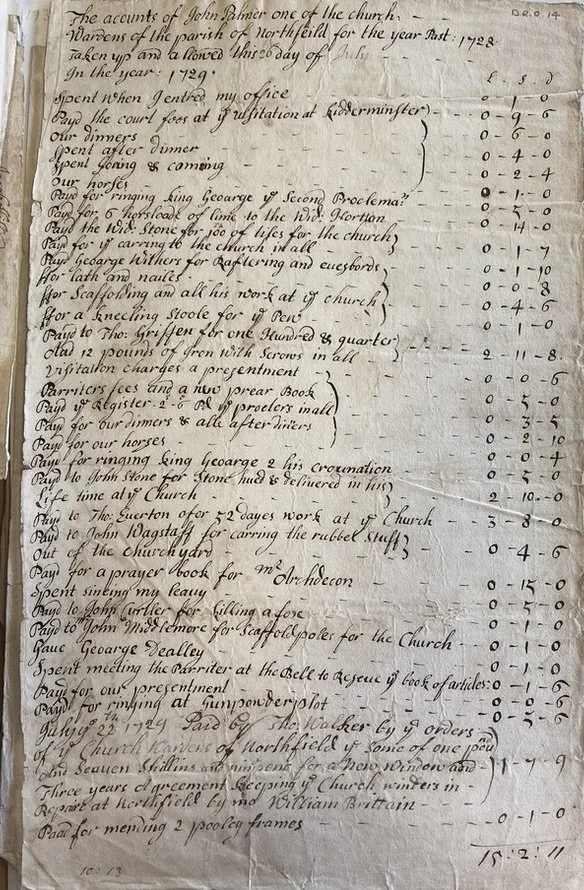 D.R.O. 14
The acounts of John Palmer one of the church:
Wardens of the parish of Northfeild for the year Past: 1728
Taken up and allowed this 26 day of July
In the year: 1729
£ . s . d
Spent When I entred my office - 0 - 1 - 0
Payd the court fees at ye visitation at Kidderminster) - 0 - 9 - 6
Our dinners - 0 - 6 - 0
Spent after dinner - 0 - 4 - 0
Spent Going & coming
Our horses - 0 - 2 - 4
Payd for ringing King Geoarge ye Second Proclema - 0 - 1 - 0
Payd for 6 horsloade of lime to the Wid: Horton - 0 - 5 - 0
Payd the Wid: Stone for of tiles for the church - 0 - 14 - 0
Payd for ye carring to the church in all - 0 - 1 - 7
Payd Geoarge Withers for Raftering and euesbords - 0 - 1 - 10
ffor lath and nailes - 0 - 0 - 8
ffor Scaffolding and all his work at ye church
ffor a Kneeling Stoole for ye Pew - 0 - 4 - 6
Payd to Tho: Griffen for one Hundred & quarter - 0 - 1 - 0
And 12 pounds of Iron With Scrows in all - 2 - 11 - 8
Visitation charges a presentment - 0 - 0 - 6
Parriters fees and a new prear Book
Payd ye Register 2 - 6 Pd ye procters in all - 0 - 5 - 0
Payd for our dinners & alle after diners - 0 - 3 - 5
Payd for our horses - 0 - 2 - 10
Payd for ringing King Geoarge 2 his crounation - 0 - 0 - 4
Payd to John Stone for Stone hued & delivered in his - 0 - 5 - 0
Life time at ye Church - 2 - 10 - 0
Payd to Tho: Euerton for 52 dayes work at ye Church - 3 - 8 - 0
Payd to John Wagstaff for carring the rubbel Stuff
Out of the churchyard - 0 - 4 - 6
Payd for a prayer book for Mr Archdecon - 0 - 15 - 0
Spent sining my leavy - 0 - 5 - 0
Payd to John Curtler for killing a fox - 0 - 1 - 0
Payd to John Middlemore for Scaffold poles for the Church - 0 - 1 - 0
Gave Geoarge Dealley - 0 - 1 - 0
Spent meeting the Parriter at the Bell to Reseve ye book of articles: 0 - 1 - 6
Payd for our presentment - 0 - 0 - 6
Payd for ringing at Gunpowderplot - 0 - 5 - 6
July ye 22th 1729 Paid by Tho Walker by ye orders
of ye Church Wardens of Northfield ye Some of one pou
And Seuven Shillins and ninpenc for a New Window and - 1 - 7 - 9
Three years agreement Keeping ye Church winders in
Repair at Northfield by me William Brittain
Paad for mending 2 pooley frames - 0 - 1 - 0
15 : 2 : 11
10 : 13